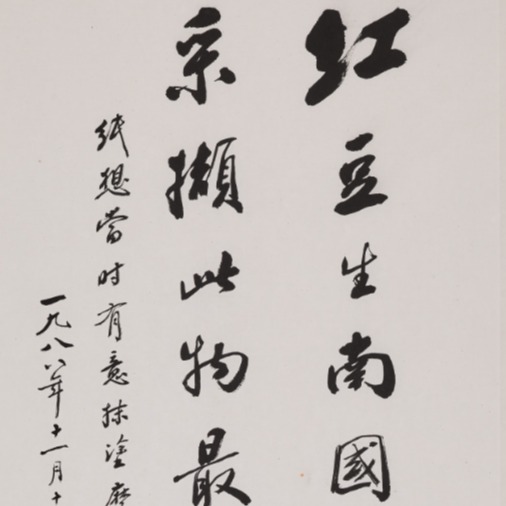 红豆生南國
采撷此物最
纸想當时有意抹塗
一九八八年十一月十